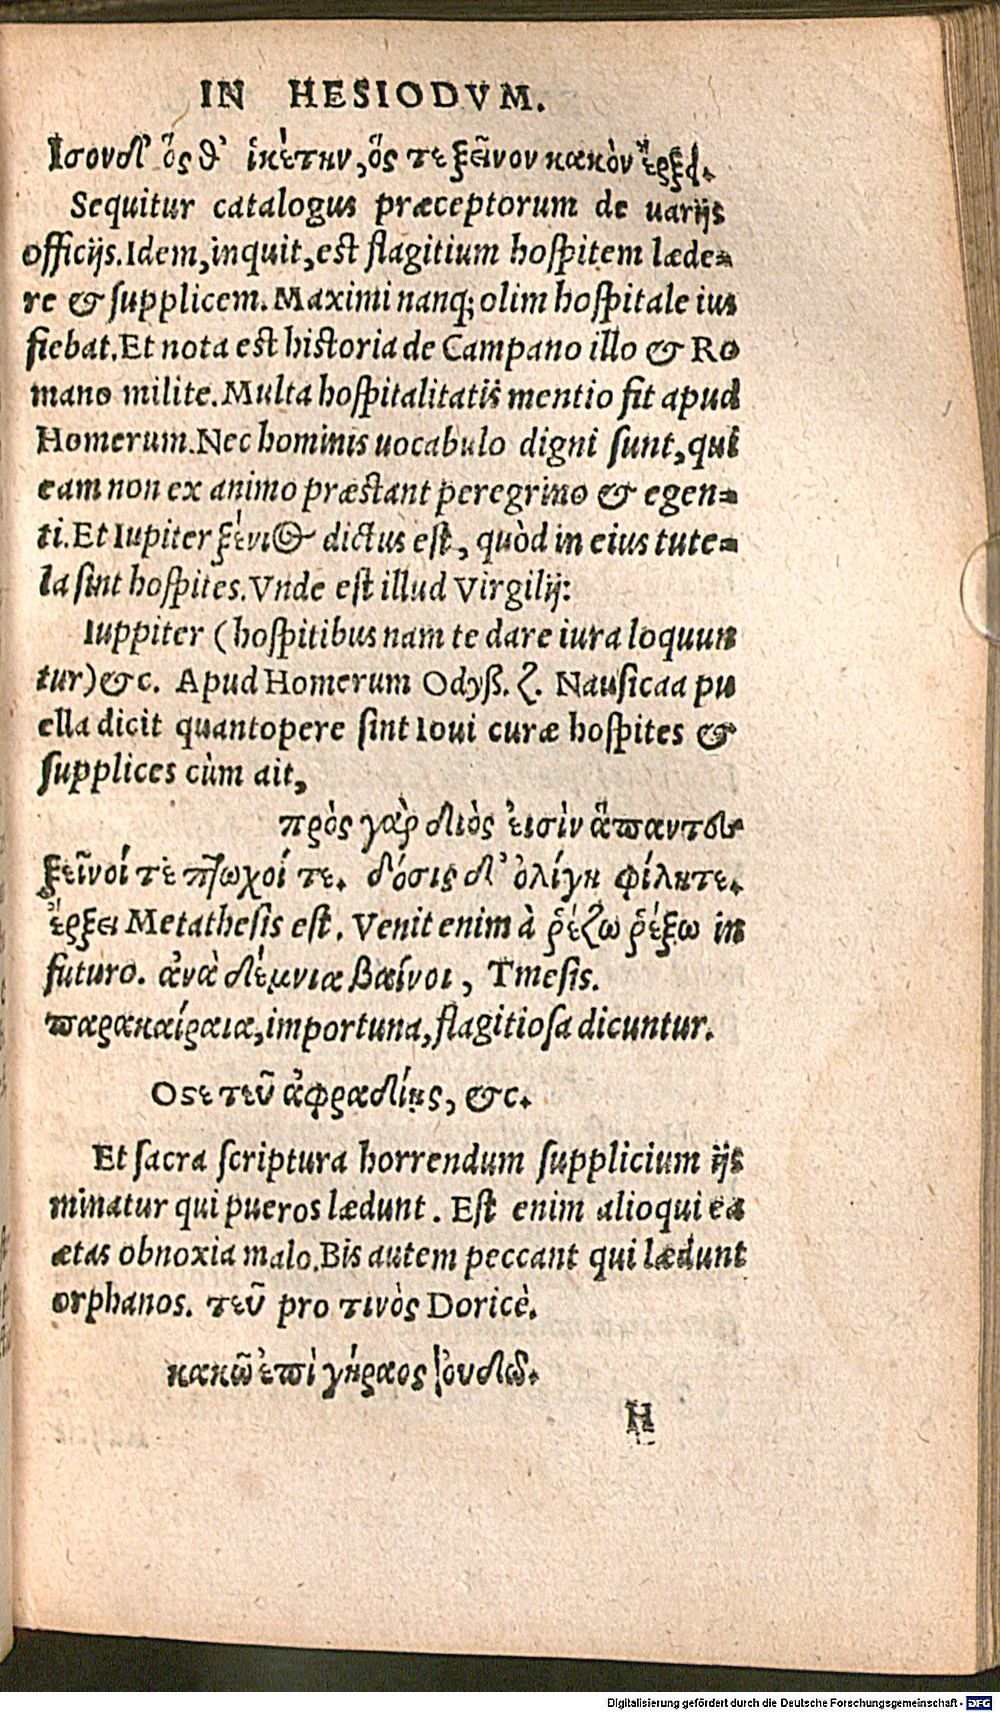 IN HESIODVM.
Ισονδ' ὅς θ' ἱκέτην, ὅς τε ξεῖνον κακὸν ἔρξει.
Sequitur catalogus præceptorum de uarijs
officijs. Idem, inquit, est flagitium hospitem læde=
re & supplicem. Maximi nanq; olim hospitale ius
fiebat. Et nota est historia de Campano illo & Ro
mano milite. Multa hospitalitatis mentio fit apud
Homerum. Nec hominis uocabulo digni sunt, qui
eam non ex animo præstant peregrino & egen=
ti. Et Iupiter ξένιος dictus est, quòd in eius tute=
la sint hospites. Vnde est illud Virgilij:
Iuppiter (hospitibus nam te dare iura loquun
tur) &c. Apud Homerum Odyß. ζ. Nausicaa pu
ella dicit quantopere sint Ioui curæ hospites &
supplices cùm ait,
πρὸς γὰρ διὸς ἐισὶν ἅπαντες
ξεῖνοί τὲ πτωχοί τε. δόσις δ' ὀλίγη φίλητε.
ἔρξει Metathesis est. Venit enim à ῥέζω ῥέξω in
futuro. ἀνὰ δέμνια βαίνοι, Tmesis.
παρακαίραια, importuna, flagitiosa dicuntur.
Οστε τεῦ ἀφραδίης, &c.
Et sacra scriptura horrendum supplicium ijs
minatur qui pueros lædunt. Est enim alioqui ea
ætas obnoxia malo. Bis autem peccant qui lædunt
orphanos. τεῦ pro τινὸς Doricè.
κακῶ ἐπὶ γήραος οὐδῶ.
H
Digitalisierung gefördert durch die Deutsche Forschungsgemeinschaft - DFG